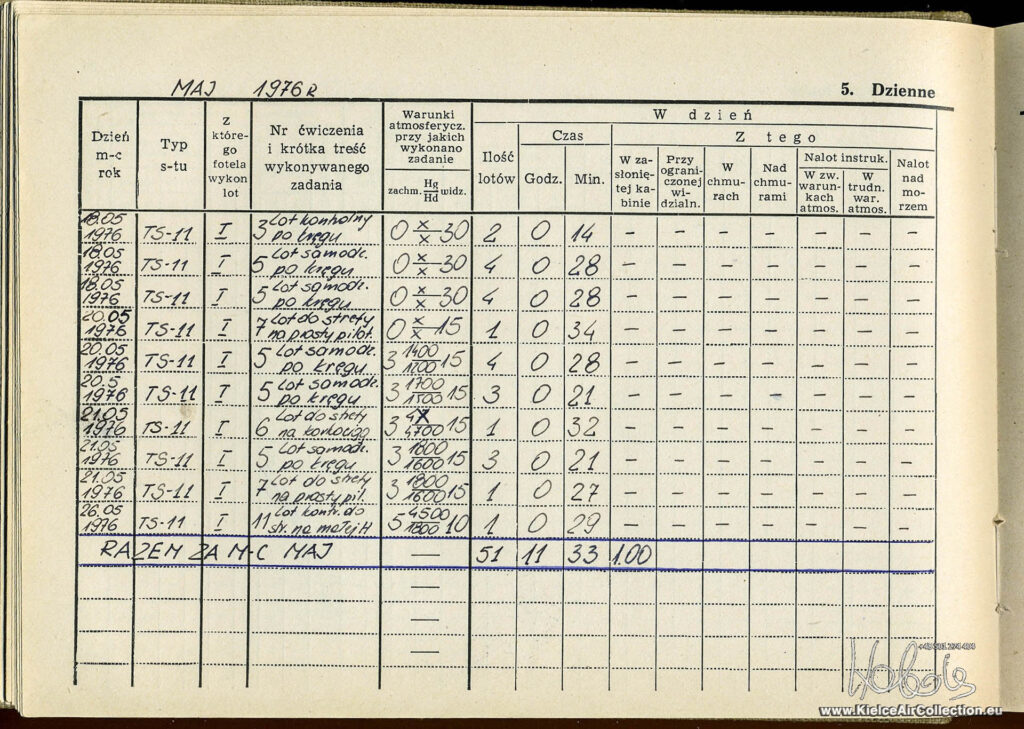 MAJ 1976 R
5. Dzienne
Dzień m-c rok
Typ s-tu
Z które-go fotela wykon lot
Nr ćwiczenia i krótka treść wykonywanego zadania
Warunki atmosferycz. przy jakich wykonano zadanie
zachm. Hg/Hd widz.
W dzień
Ilość lotów
Czas
Godz. Min.
Z tego
W za-słonię-tej ka-binie
Przy ograni-czonej wi-dzialn.
W chmu-rach
Nad chmu-rami
Nalot instruk.
W zw. warun-kach atmos.
W trudn. war. atmos.
Nalot nad mo-rzem
18.05 1976 TS-11 I 3 Lot kontrolny po kręgu 0 x/x 30 2 0 14 – – – – – – –
18.05 1976 TS-11 I 5 Lot samodz. po kręgu 0 x/x 30 4 0 28 – – – – – – –
18.05 1976 TS-11 I 5 Lot samodz. po kręgu 0 x/x 30 4 0 28 – – – – – – –
20.05 1976 TS-11 I 7 Lot do strefy na prosty pilot. 0 x/x 15 1 0 34 – – – – – – –
20.05 1976 TS-11 I 5 Lot samodz. po kręgu 3 1400/1200 15 4 0 28 – – – – – – –
20.5 1976 TS-11 I 5 Lot samodz. po kręgu 3 1700/1500 15 3 0 21 – – – – – – –
21.05 1976 TS-11 I 6 Lot do strefy na korkociąg 3 /4700 15 1 0 32 – – – – – – –
21.05 1976 TS-11 I 5 Lot samodz. po kręgu 3 1800/1600 15 3 0 21 – – – – – – –
21.05 1976 TS-11 I 7 Lot do strefy na prosty pil. 3 1800/1600 15 1 0 27 – – – – – – –
26.05 1976 TS-11 I 11 Lot kontr. do str. na małej H 5 4500/1800 10 1 0 29 – – – – – – –
RAZEM ZA M-C MAJ — 51 11 33 1.00
—
—
—
www.KielceAirCollection.eu